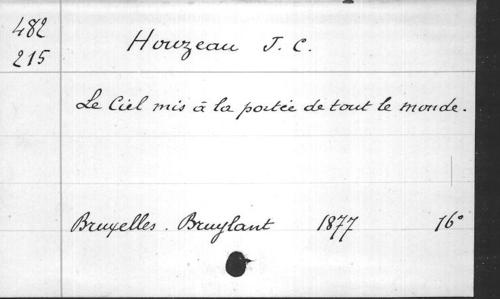 482 Houzeau J. C.
215
Le Ciel mis à la portée de tout le monde.
Bruxelles. Bruylant 1877 16°